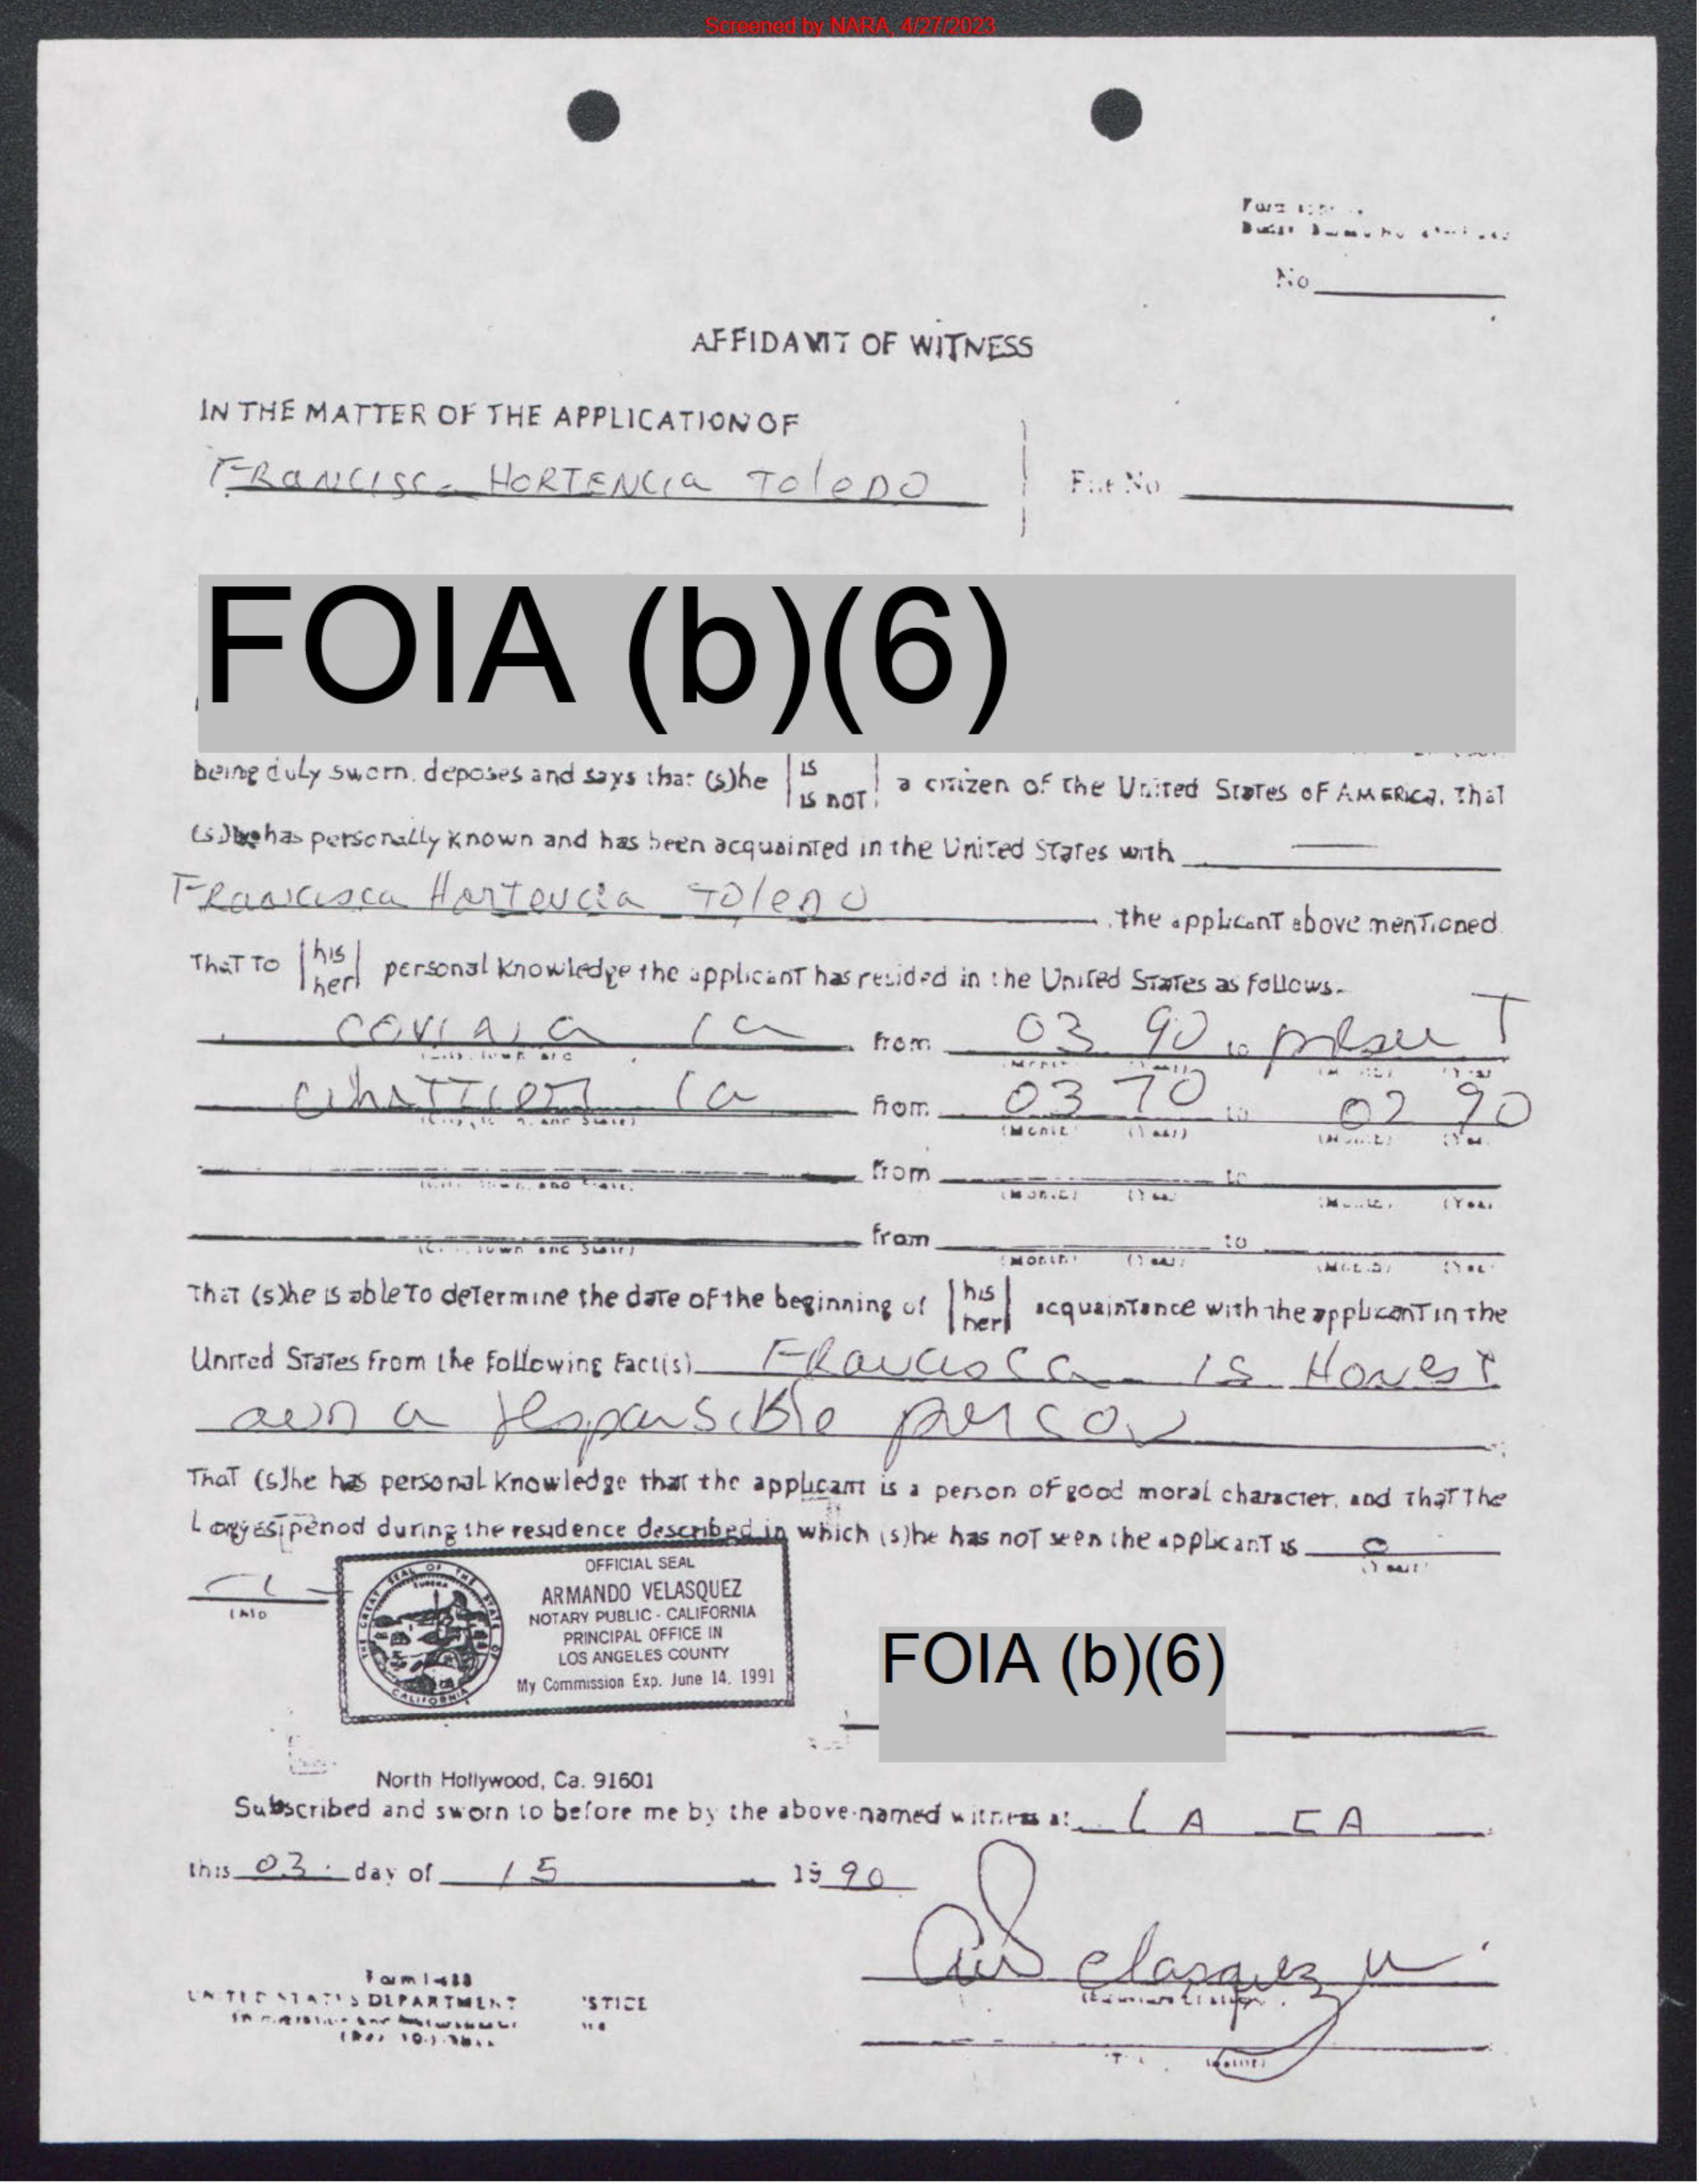 Screened by NARA, 4/27/2023
No
AFFIDAVIT OF WITNESS
IN THE MATTER OF THE APPLICATION OF
FRANCISCA HORTENCIA TOLEDO
File No
FOIA (b)(6)
being duly sworn, deposes and says that (s)he | is | is not | a citizen of the United States of America. That
(s)he has personally known and has been acquainted in the United States with
Francisca Hortencia Toledo , the applicant above mentioned.
That to | his | her | personal knowledge the applicant has resided in the United States as follows.
COVINA Ca from 03 90 to present
Whittier Ca from 03 70 to 02 90
(Month) (Year)
from to
(Month) (Year)
from to
(City, Town and State) (Month) (Year)
That (s)he is able to determine the date of the beginning of | his | her | acquaintance with the applicant in the
United States from the following fact(s) Francisca is Honest
and a responsible person
That (s)he has personal knowledge that the applicant is a person of good moral character, and that the
Longest period during the residence described in which (s)he has not seen the applicant is 0
OFFICIAL SEAL
ARMANDO VELASQUEZ
NOTARY PUBLIC - CALIFORNIA
PRINCIPAL OFFICE IN
LOS ANGELES COUNTY
My Commission Exp. June 14, 1991
THE GREAT SEAL OF THE STATE OF CALIFORNIA
EUREKA
FOIA (b)(6)
North Hollywood, Ca. 91601
Subscribed and sworn to before me by the above-named witness at LA CA
this 03 day of 15 1990
UNITED STATES DEPARTMENT STICE